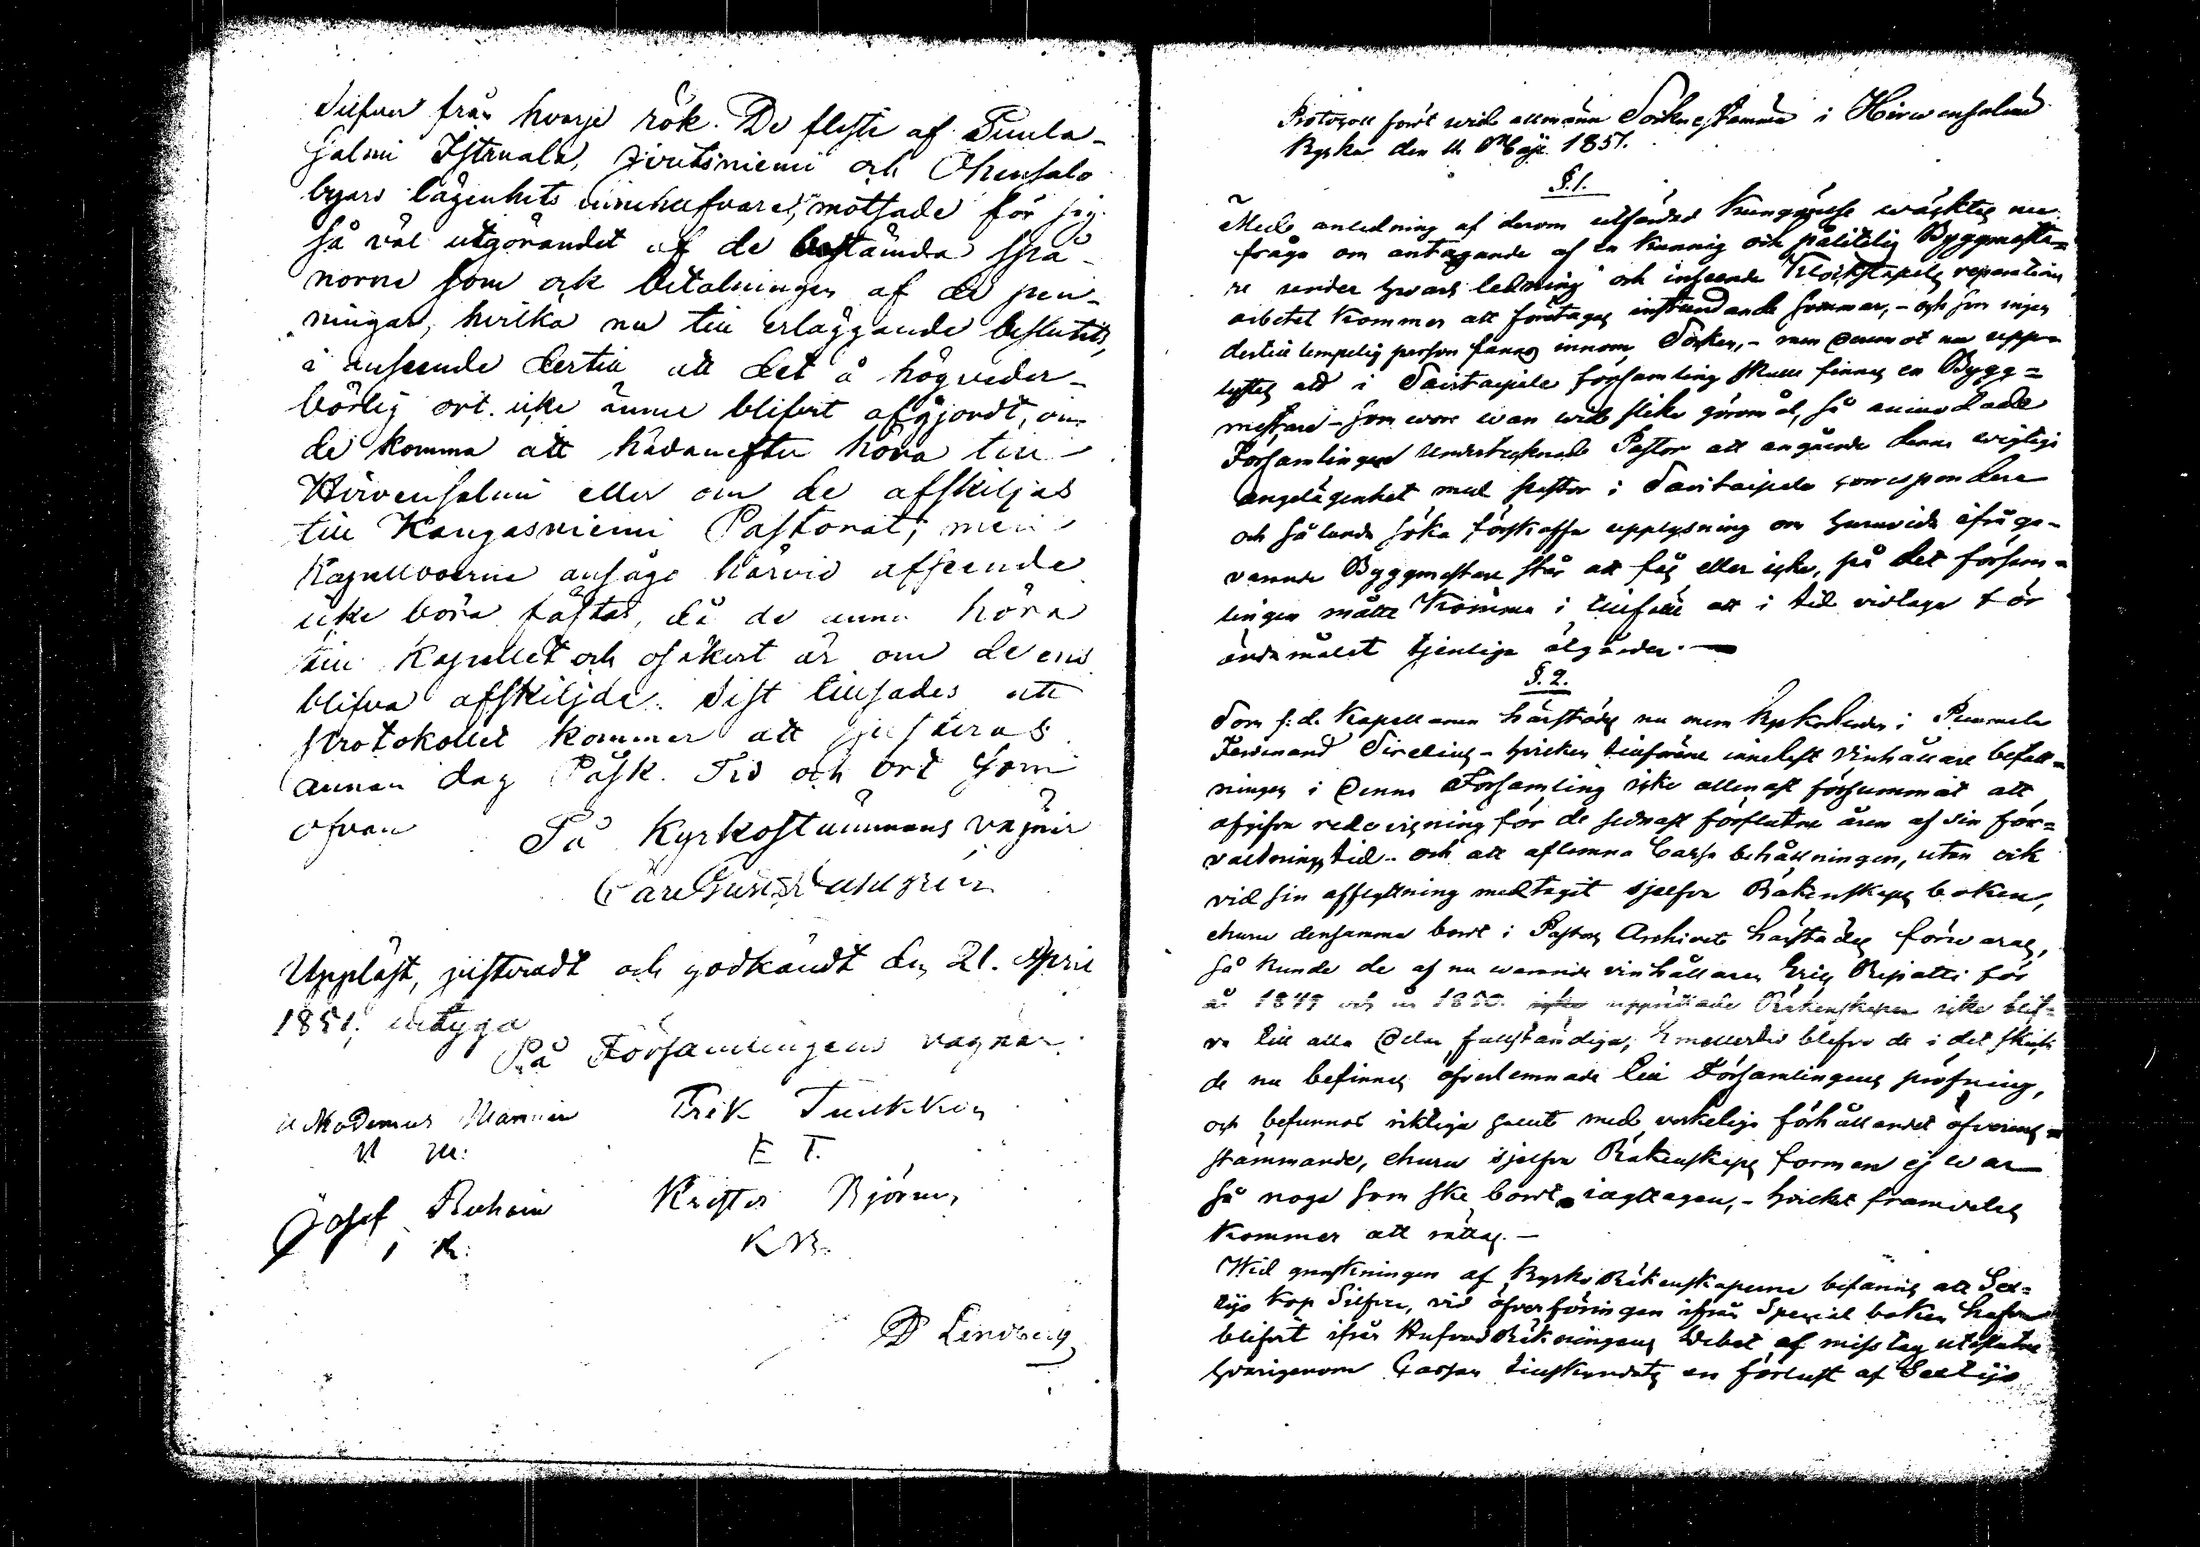 Silfver från hvarje rök. De fleste af Suula-
salmi Istruala, och Ohensalo
byars lägenhets innehafvare, motsade för sig
så väl utgörandet af de bestämda spa-
norne som ock betalningen af de pen-
ningar, hvilka nu till erläggande beslutits,
i anseende dertill att det å högveder-
börlig ort icke ännu blifvit afgjordt, om
de komma att hädanefter höra till
Hirvensalmi eller om de afskiljas
till Kangasniemi Pastorat; men
Kapellboerne ansågo härvid afseende
icke böra fästas, då de ännu höra
till Kapellet och osäkert är om de ens
blifva afskiljde. Sist tillsades att
Protokollet kommer att justeras
annan dag Påsk. Tid och ort som
ofvan
På Kyrkostämmans vägnar
Carl Gust.
Uppläst, justeradt och godkändt den 21. April
1851, intyga
På Församlingens vägnar
Nikodemus Manninen Erik Tuukkanen
N M: E T.
Josef Krister Björn
K B.
Lindberg
Protocoll fördt wid allmänna Sockne Stämma i Hirwensalmi
Kyrka den 11 Maji 1851.
§.1.
Med anledning af derom utfärdad Kungörelse wäcktes nu
fråga om antagande af en kunnig och pålitelig Byggmästa=
re under hwars ledning och inseende Klockstapels reparations
arbetet kommer att företagas instundande sommar,- och som ingen
dertill lempelig person fanns innom Socken,- men deremot nu upp-
lystes att i Savitaipale församling skulle finnas en Bygg=
mästare - som wore wan wid slike göromål, så anmodade
Församlingen undertecknade Pastor att angående denna wigtiga
angelägenhet med Pastor i Savitaipale correspondera
och sålunda söka förskaffa upplysning om huruvida ifråga-
varande Byggmästare står att fås eller icke, på det försam-
lingen måtte komma i tillfälle att i tid vidtaga för
ändamålet tjenliga åtgärder.
§. 2.
Som f: d. Kapellanen härstädes nu mera Kyrkoherden i Pummala
Ferdinand Sirelius - hvilken tillförene innehaft vinhållare befatt=
ningen i denna Församling icke allenast försummat att
afgifva redovisning för de sednast förflutne åren af sin för=
valtningstid - och att aflemna Cassa behållningen, utan ock
vid sin afflyttning medtagit sjelfva Räkenskaps boken,
ehuru densamma bordt i Pastors Archivet härstädes förwaras,
så kunde de af nu warande vinhållaren Eric Repatti för
år 1849 och år 1850. upprättade Räkenskaper icke blif-
va till alla delar fullständiga; Emellertid blefvo de i det skick
de nu befinnas öfverlemnade till Församlingens pröfning,
och befunnos riktiga samt med verkeliga förhållandet öfverens=
stämmande, ehuru sjelfva Räkenskaps formen ej war
så noga som ske bordt iagttagen,- hvilket framdeles
kommer att rättas.-
Wid granskningen af Kyrko Räkenskaperne befanns att Sex=
tijo Kop Silfver, vid öfverföringen ifrån Special boken hafva
blifvit ifrån Hufvud Räkningens Debet af misstag uteslutne
hvarigenom Cassan tillskyndats en förlust af Sextijo